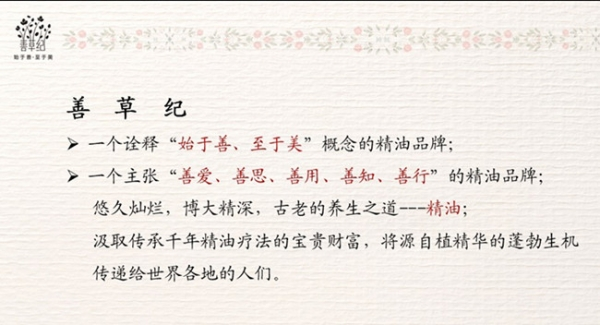 善草纪
始于善·至于美
善 草 纪
➢ 一个诠释“始于善、至于美”概念的精油品牌；
➢ 一个主张“善爱、善思、善用、善知、善行”的精油品牌；
悠久灿烂，博大精深，古老的养生之道---精油；
汲取传承千年精油疗法的宝贵财富，将源自植精华的蓬勃生机
传递给世界各地的人们。